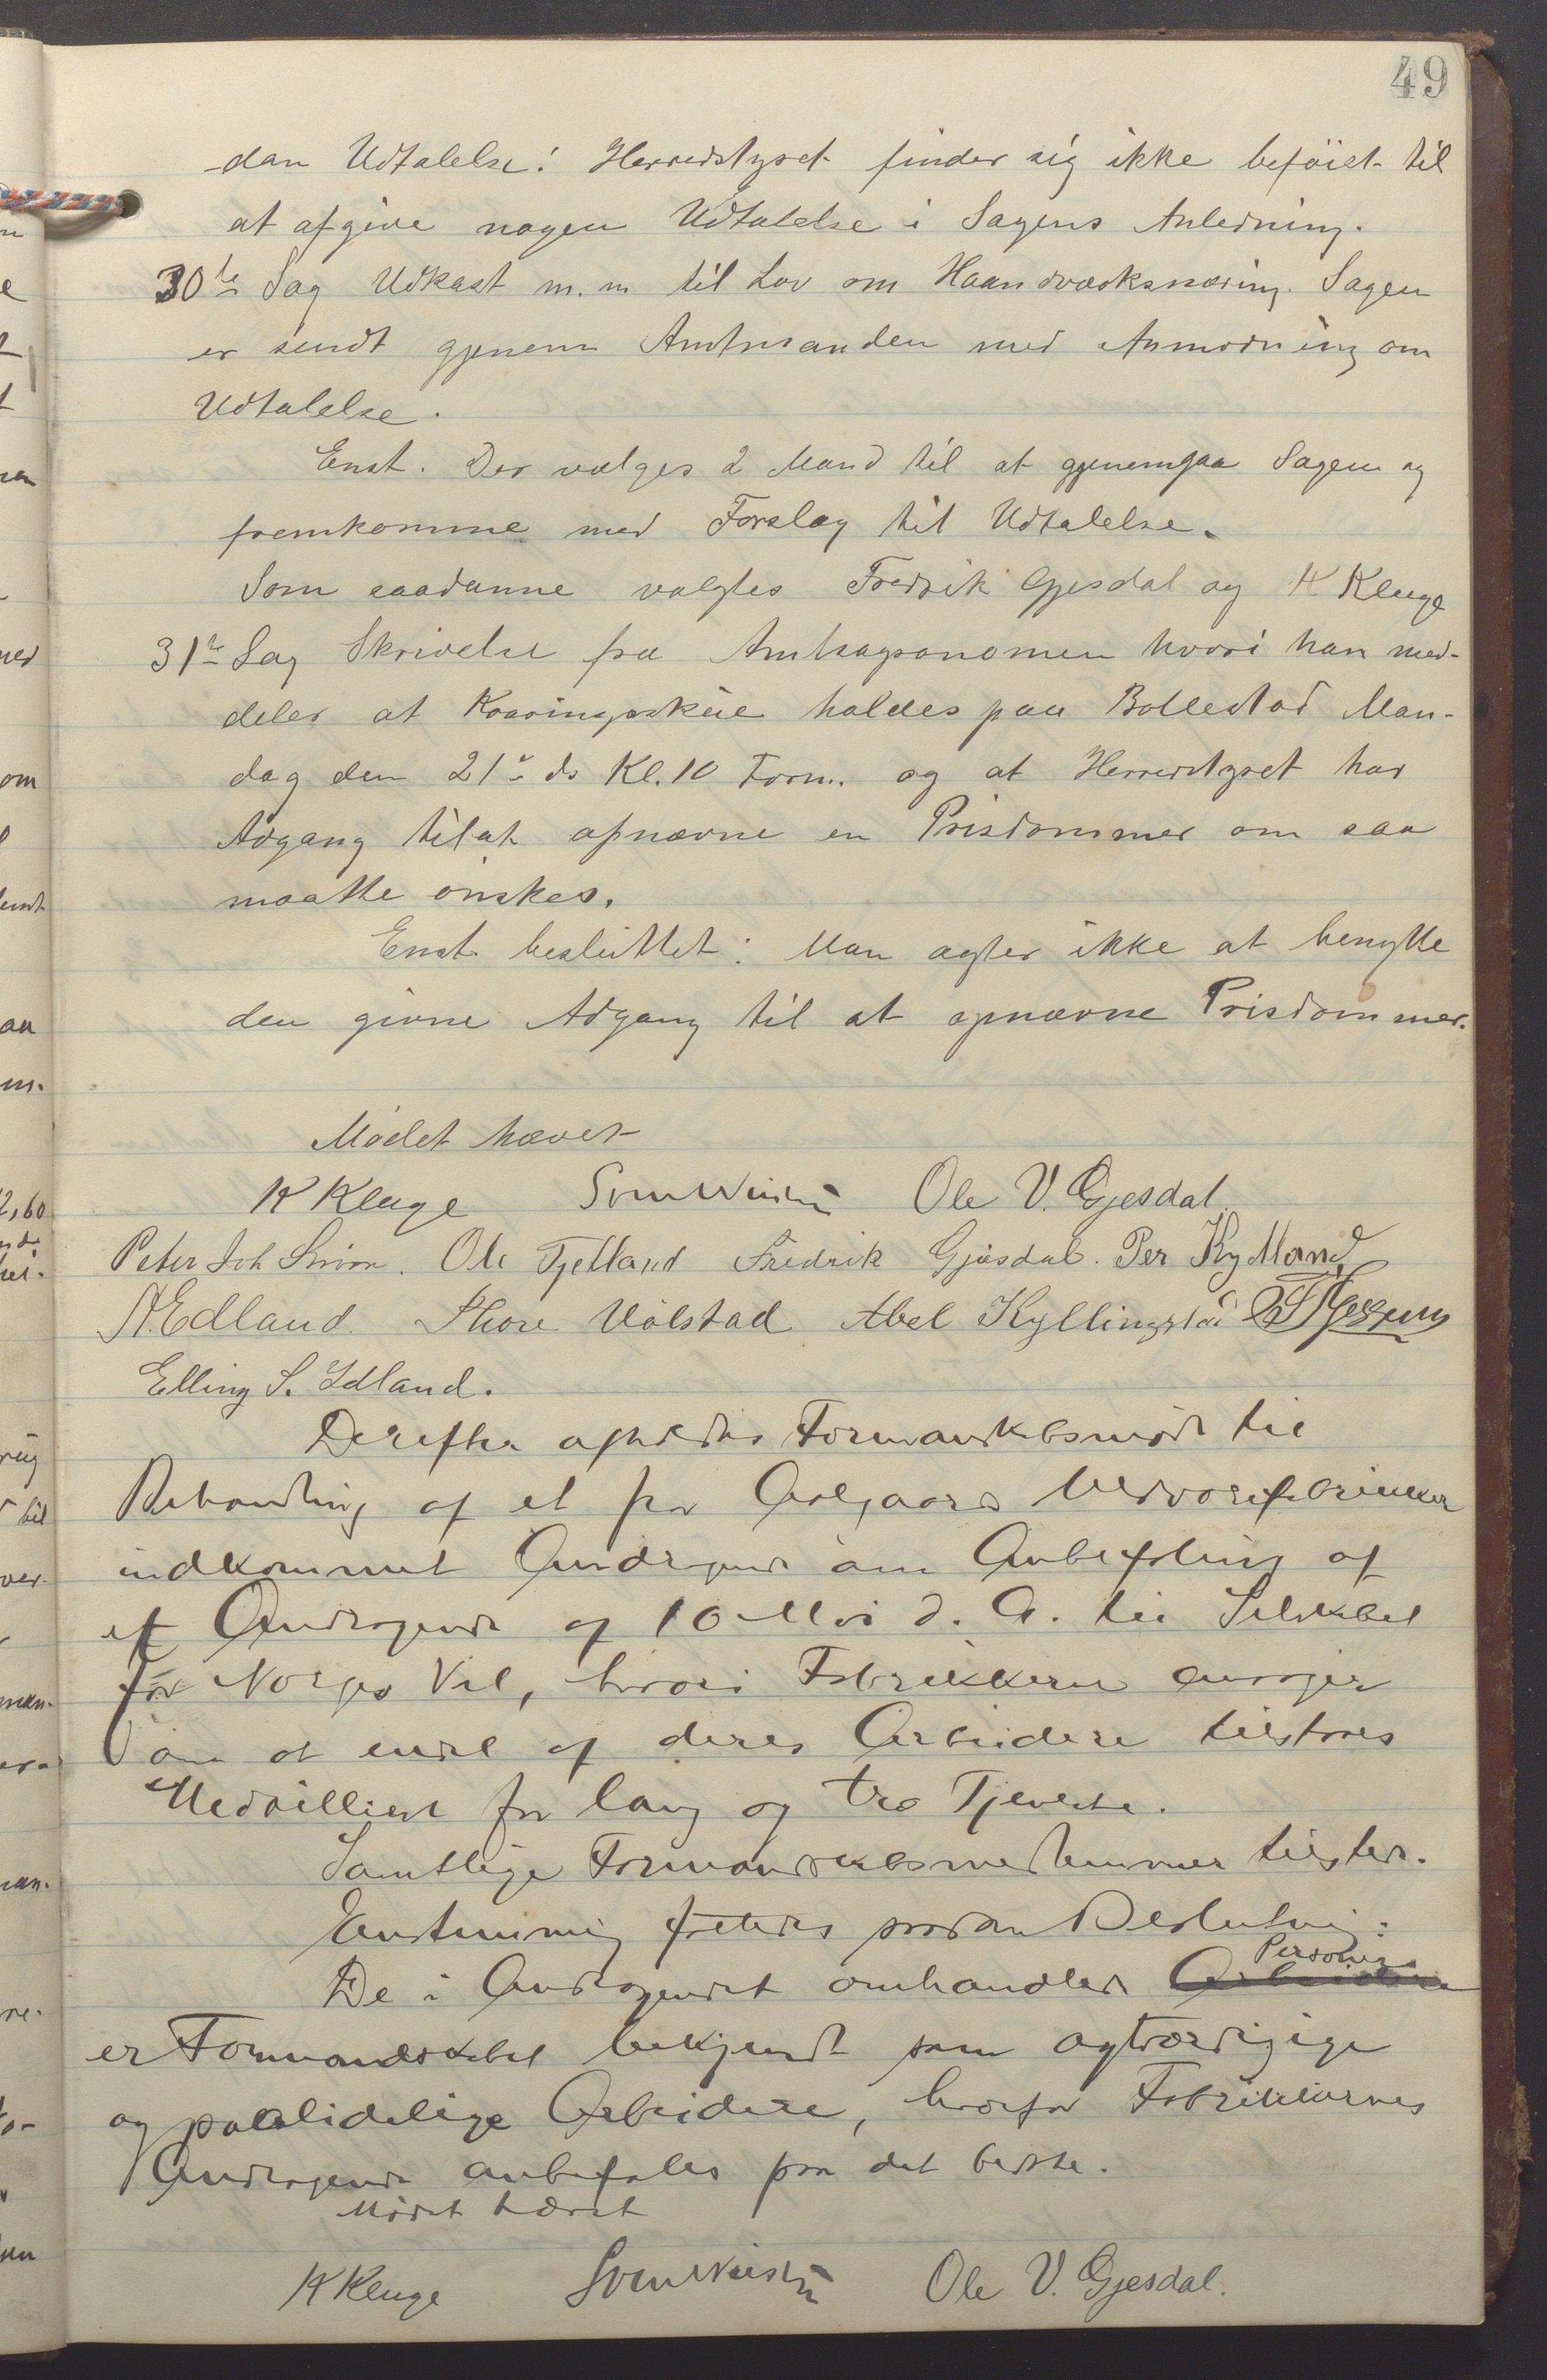 49
dan Udtalelse: Herredstyret finder sig ikke beføiet til
at afgive nogen Udtalelse i Sagens Anledning.
30te Sag Udkast m.m til Lov om Haandværksnæring. Sagen
er sendt gjenem Amtmanden med Anmodning om
Udtalelse.
Enst. Der vælges 2 Mand til at gjenemgaa Sagen og
fremkomme med Forslag til Udtalelse.
Som saadanne valgtes Fredrik Gjesdal og K Kluge
31te Sag Skrivelse fra Amtsagronomen hvori han med-
deler at Kaaringsskue holdes paa Bollestad Man-
dag den 21de ds Kl. 10 Form. og at Herredstyret har
Adgang til at opnævne en Prisdommer om saa
maatte ønskes.
Enst besluttet: Man agter ikke at benytte
den givne Adgang til at opnævne Prisdommer.
Mødet hævet
K Kluge Ole V. Gjesdal
Peter Joh Ole Tjetland Fredrik Gjesdal. Per Kydland
A. Edland. Thore Ualstad Abel Kyllingstad
Elling S. Idland.
Derefter afholdtes Formandskabsmøde til
Behandling af et fra Aalgaards Uldvarefabrikker
indkommet Andragende om Anbefaling af
et Andragende af 10 Mai d. A. til Selskabet
for Norges Vel, hvori Fabrikkerne ansøger
om at endel af deres Arbeidere tilstaaes
Medaillier for lang og tro Tjeneste.
Samtlige Formandskabsmedlemmer tilstede.
Enstemmig fattedes saadan Beslutning:
De i Andragendet omhandlede Arbeidere Personer
er Formandskabet bekjendt som agtværdigige
og paalidelige Arbeidere, hvorfor Fabrikkernes
Andragende anbefales paa det bedste.
Mødet hævet
K Kluge Ole V. Gjesdal.